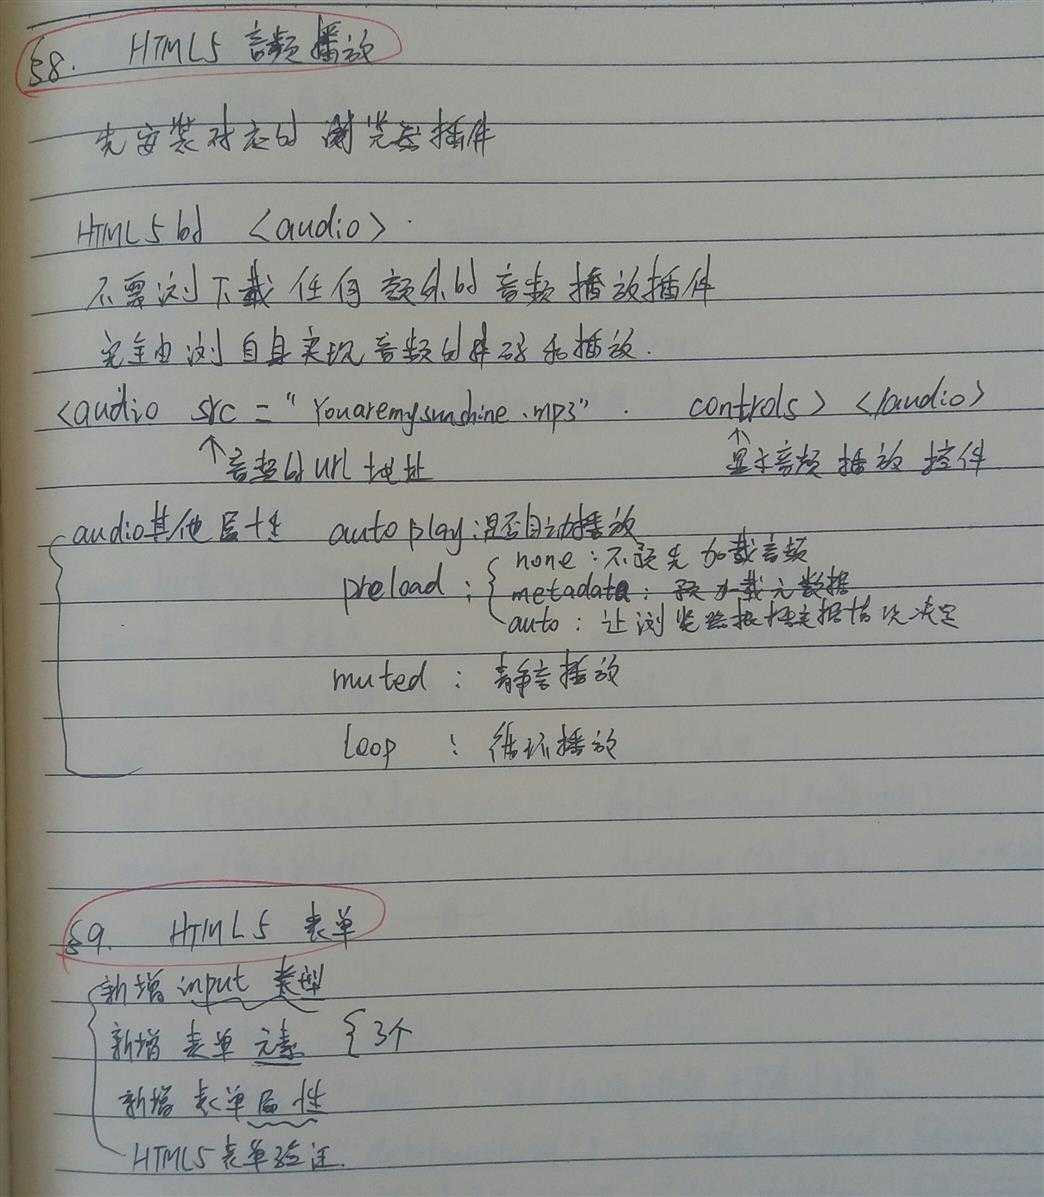 §8. HTML5 音频播放
先安装对应的 浏览器插件
HTML5的 <audio>.
不需浏下载任何额外的音频播放插件
完全由浏自身实现音频的解码和播放.
<audio src="Youaremysunshine.mp3" controls> </audio>
↑音频的url地址 ↑显示音频播放控件
audio其他属性 autoplay:是否自动播放
preload: none:不预先加载音频
metadata:预加载元数据
auto:让浏览器根据情况决定
muted:静音播放
loop:循环播放
§9. HTML5 表单
新增input类型
新增表单元素 {3个
新增表单属性
HTML5表单验证.